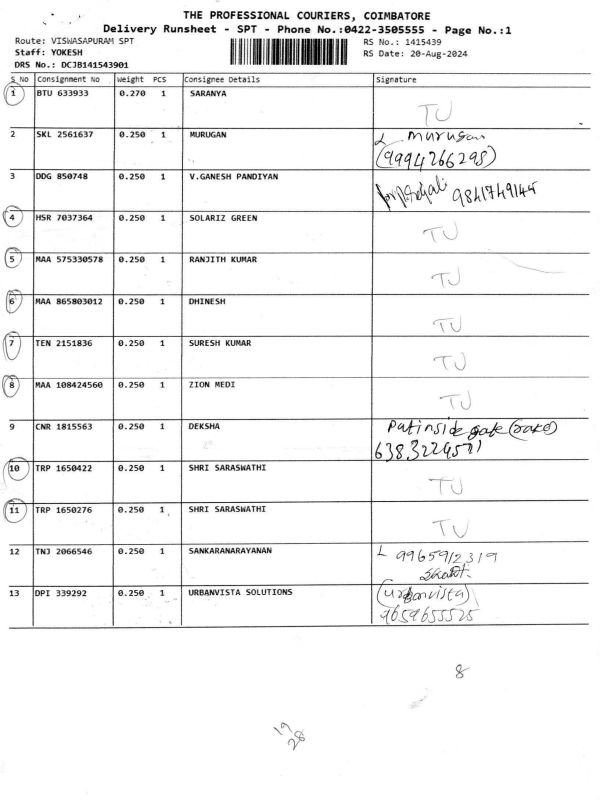 THE PROFESSIONAL COURIERS, COIMBATORE
Delivery Runsheet - SPT - Phone No.:0422-3505555 - Page No.:1
Route: VISWASAPURAM SPT RS No.: 1415439
Staff: YOKESH RS Date: 20-Aug-2024
DRS No.: DCJB141543901
S No Consignment No Weight PCS Consignee Details Signature
1 BTU 633933 0.270 1 SARANYA TU
2 SKL 2561637 0.250 1 MURUGAN Murugan
(9994266298)
3 DDG 850748 0.250 1 V.GANESH PANDIYAN 9841749145
4 HSR 7037364 0.250 1 SOLARIZ GREEN TU
5 MAA 575330578 0.250 1 RANJITH KUMAR TU
6 MAA 865803012 0.250 1 DHINESH TU
7 TEN 2151836 0.250 1 SURESH KUMAR TU
8 MAA 108424560 0.250 1 ZION MEDI TU
9 CNR 1815563 0.250 1 DEKSHA Put inside gate
10 TRP 1650422 0.250 1 SHRI SARASWATHI TU
11 TRP 1650276 0.250 1 SHRI SARASWATHI TU
12 TNJ 2066546 0.250 1 SANKARANARAYANAN L 9965912319
13 DPI 339292 0.250 1 URBANVISTA SOLUTIONS (Urbanvista)
9659655525
8
19
28